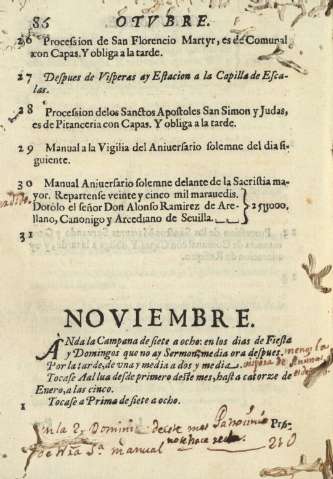 86 OTVBRE.
26 Procession de San Florencio Martyr, es de Comunal
con Capas. Y obliga a la tarde.
27 Despues de Visperas ay Estacion a la Capilla de Esca-
las.
28 Procession delos Sanctos Apostoles San Simon y Judas,
es de Pitanceria con Capas. Y obliga a la tarde.
29 Manual a la Vigilia del Aniuersario solemne del dia si-
guiente.
30 Manual Aniuersario solemne delante de la Sacristia ma-
yor. Repartense veinte y cinco mil marauedis.
Dotolo el señor Don Alonso Ramirez de Are-
llano, Canonigo y Arcediano de Seuilla.
25U000.
31
NOVIEMBRE.
ANda la Campana de siete a ocho: en los dias de Fiesta
y Domingos que no ay Sermon, media ora despues.
Por la tarde, de vna y media a dos y media.
Tocase Aalua desde primero deste mes, hasta catorze de
Enero, a las cinco.
1 Tocase a Prima de siete a ocho.
Pro-
en la 2ª Dominica deste mes Patrocinio
de Nra Sª manual